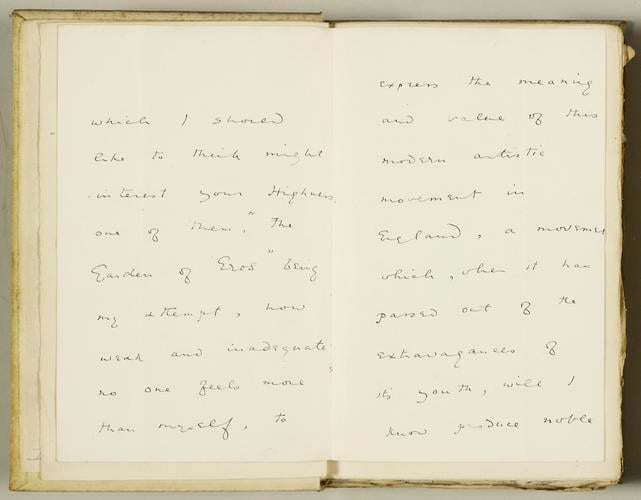 which I should
like to think might
interest your Highness
one of them, "the
Garden of Eros" being
my attempt, how
weak and inadequate
no one feels more
than myself, to
express the meaning
and value of this
modern artistic
movement in
England, a movemen
which, when it has
passed out of the
extravagances of
its youth, will I
know produce noble